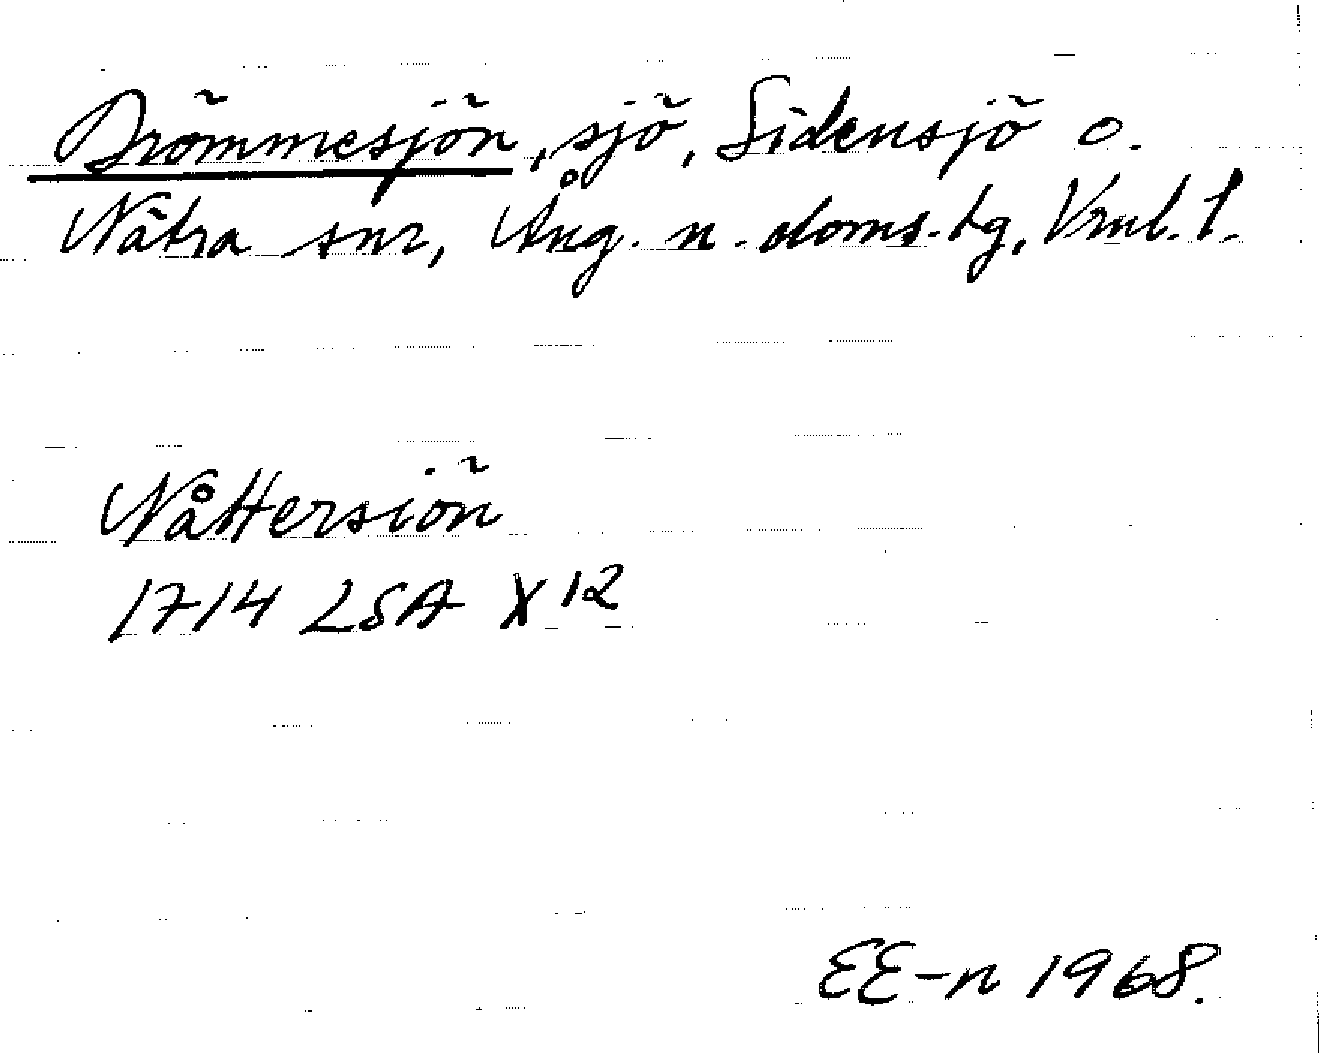 Drömmesjön, sjö, Sidensjö o.
Nätra snr, Ång. n. doms.-tg, Vrnl. l.
Nåttersiön
1714 LSA X 12
EE-n 1968.